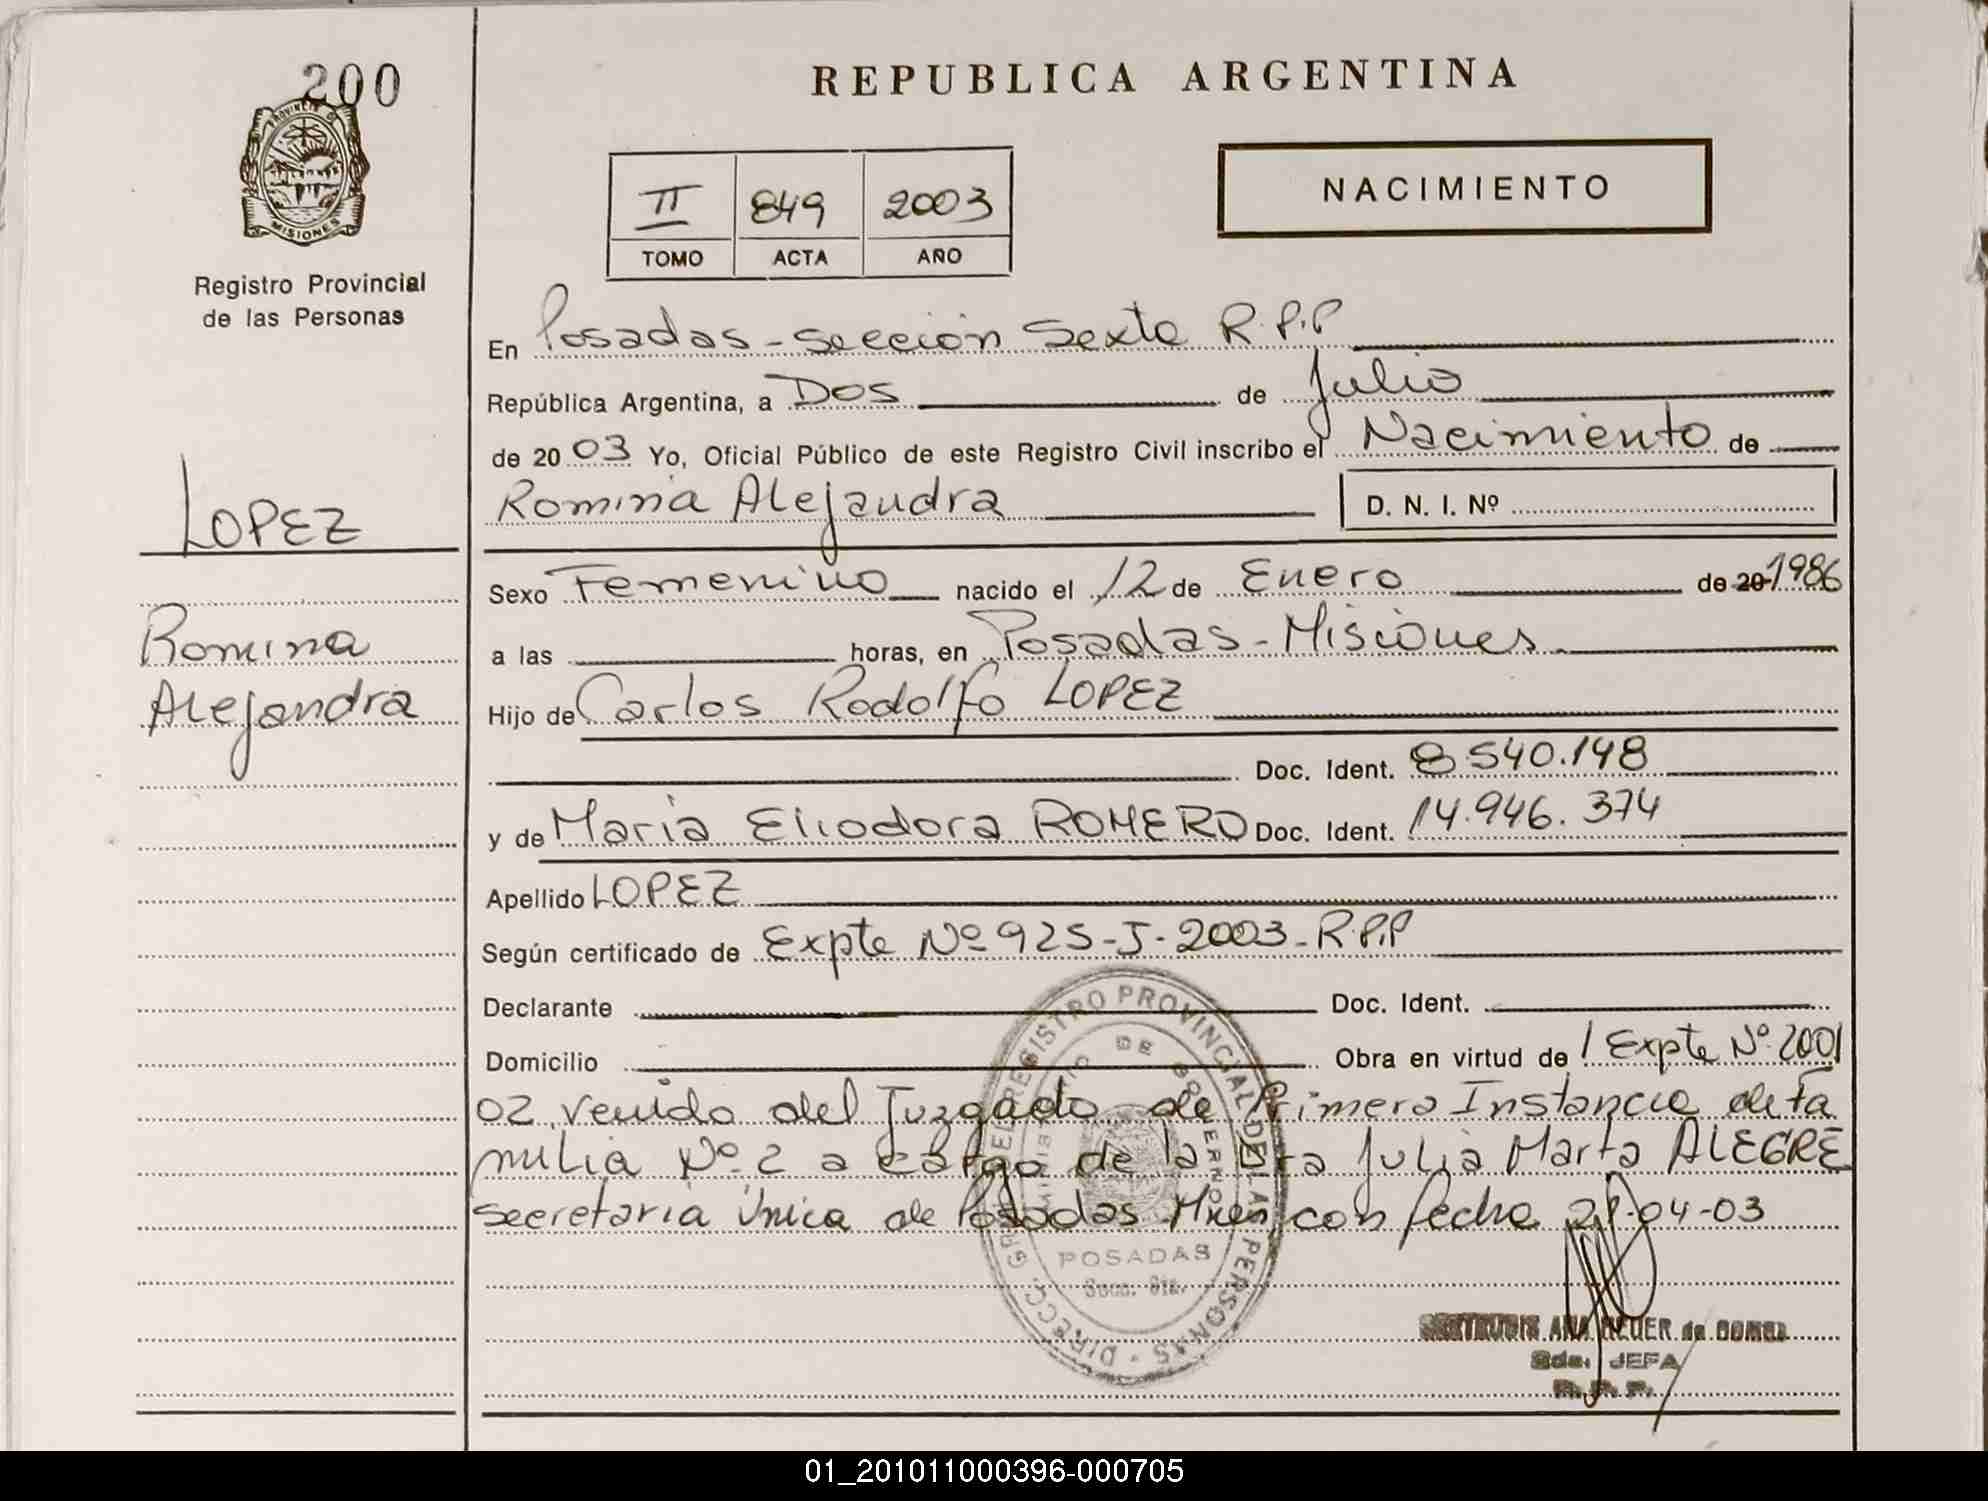 200
PROVINCIA DE
MISIONES
Registro Provincial
de las Personas
LOPEZ
Romina
Alejandra
REPUBLICA ARGENTINA
II 849 2003
TOMO ACTA AÑO
NACIMIENTO
En Posadas - sección Sexta R.P.P
República Argentina, a Dos de Julio
de 2003 Yo, Oficial Público de este Registro Civil inscribo el Nacimiento de
Romina Alejandra D. N. I. Nº
Sexo Femenino nacido el 12 de Enero de 20 1986
a las horas, en Posadas - Misiones
Hijo de Carlos Rodolfo LOPEZ
Doc. Ident. 8.540.148
y de Maria Eliodora ROMERO Doc. Ident. 14.946.374
Apellido LOPEZ
Según certificado de Expte Nº 925-J-2003-R.P.P
Declarante Doc. Ident.
Domicilio Obra en virtud de / Expte Nº 2001
02 venido del Juzgado de Primera Instancia de Fa
milia Nº 2 a cargo de la Dra Julia Marta ALEGRE
secretaria Única de Posadas Mnes, con fecha 04-03
DIRECC. GRAL. DEL REGISTRO PROVINCIAL DE LAS PERSONAS
MINISTERIO DE GOBIERNO
POSADAS
Secc. 6ta.
GERTRUDIS ANA de GOMEZ
Sda. JEFA
R.P.P.
01_201011000396-000705